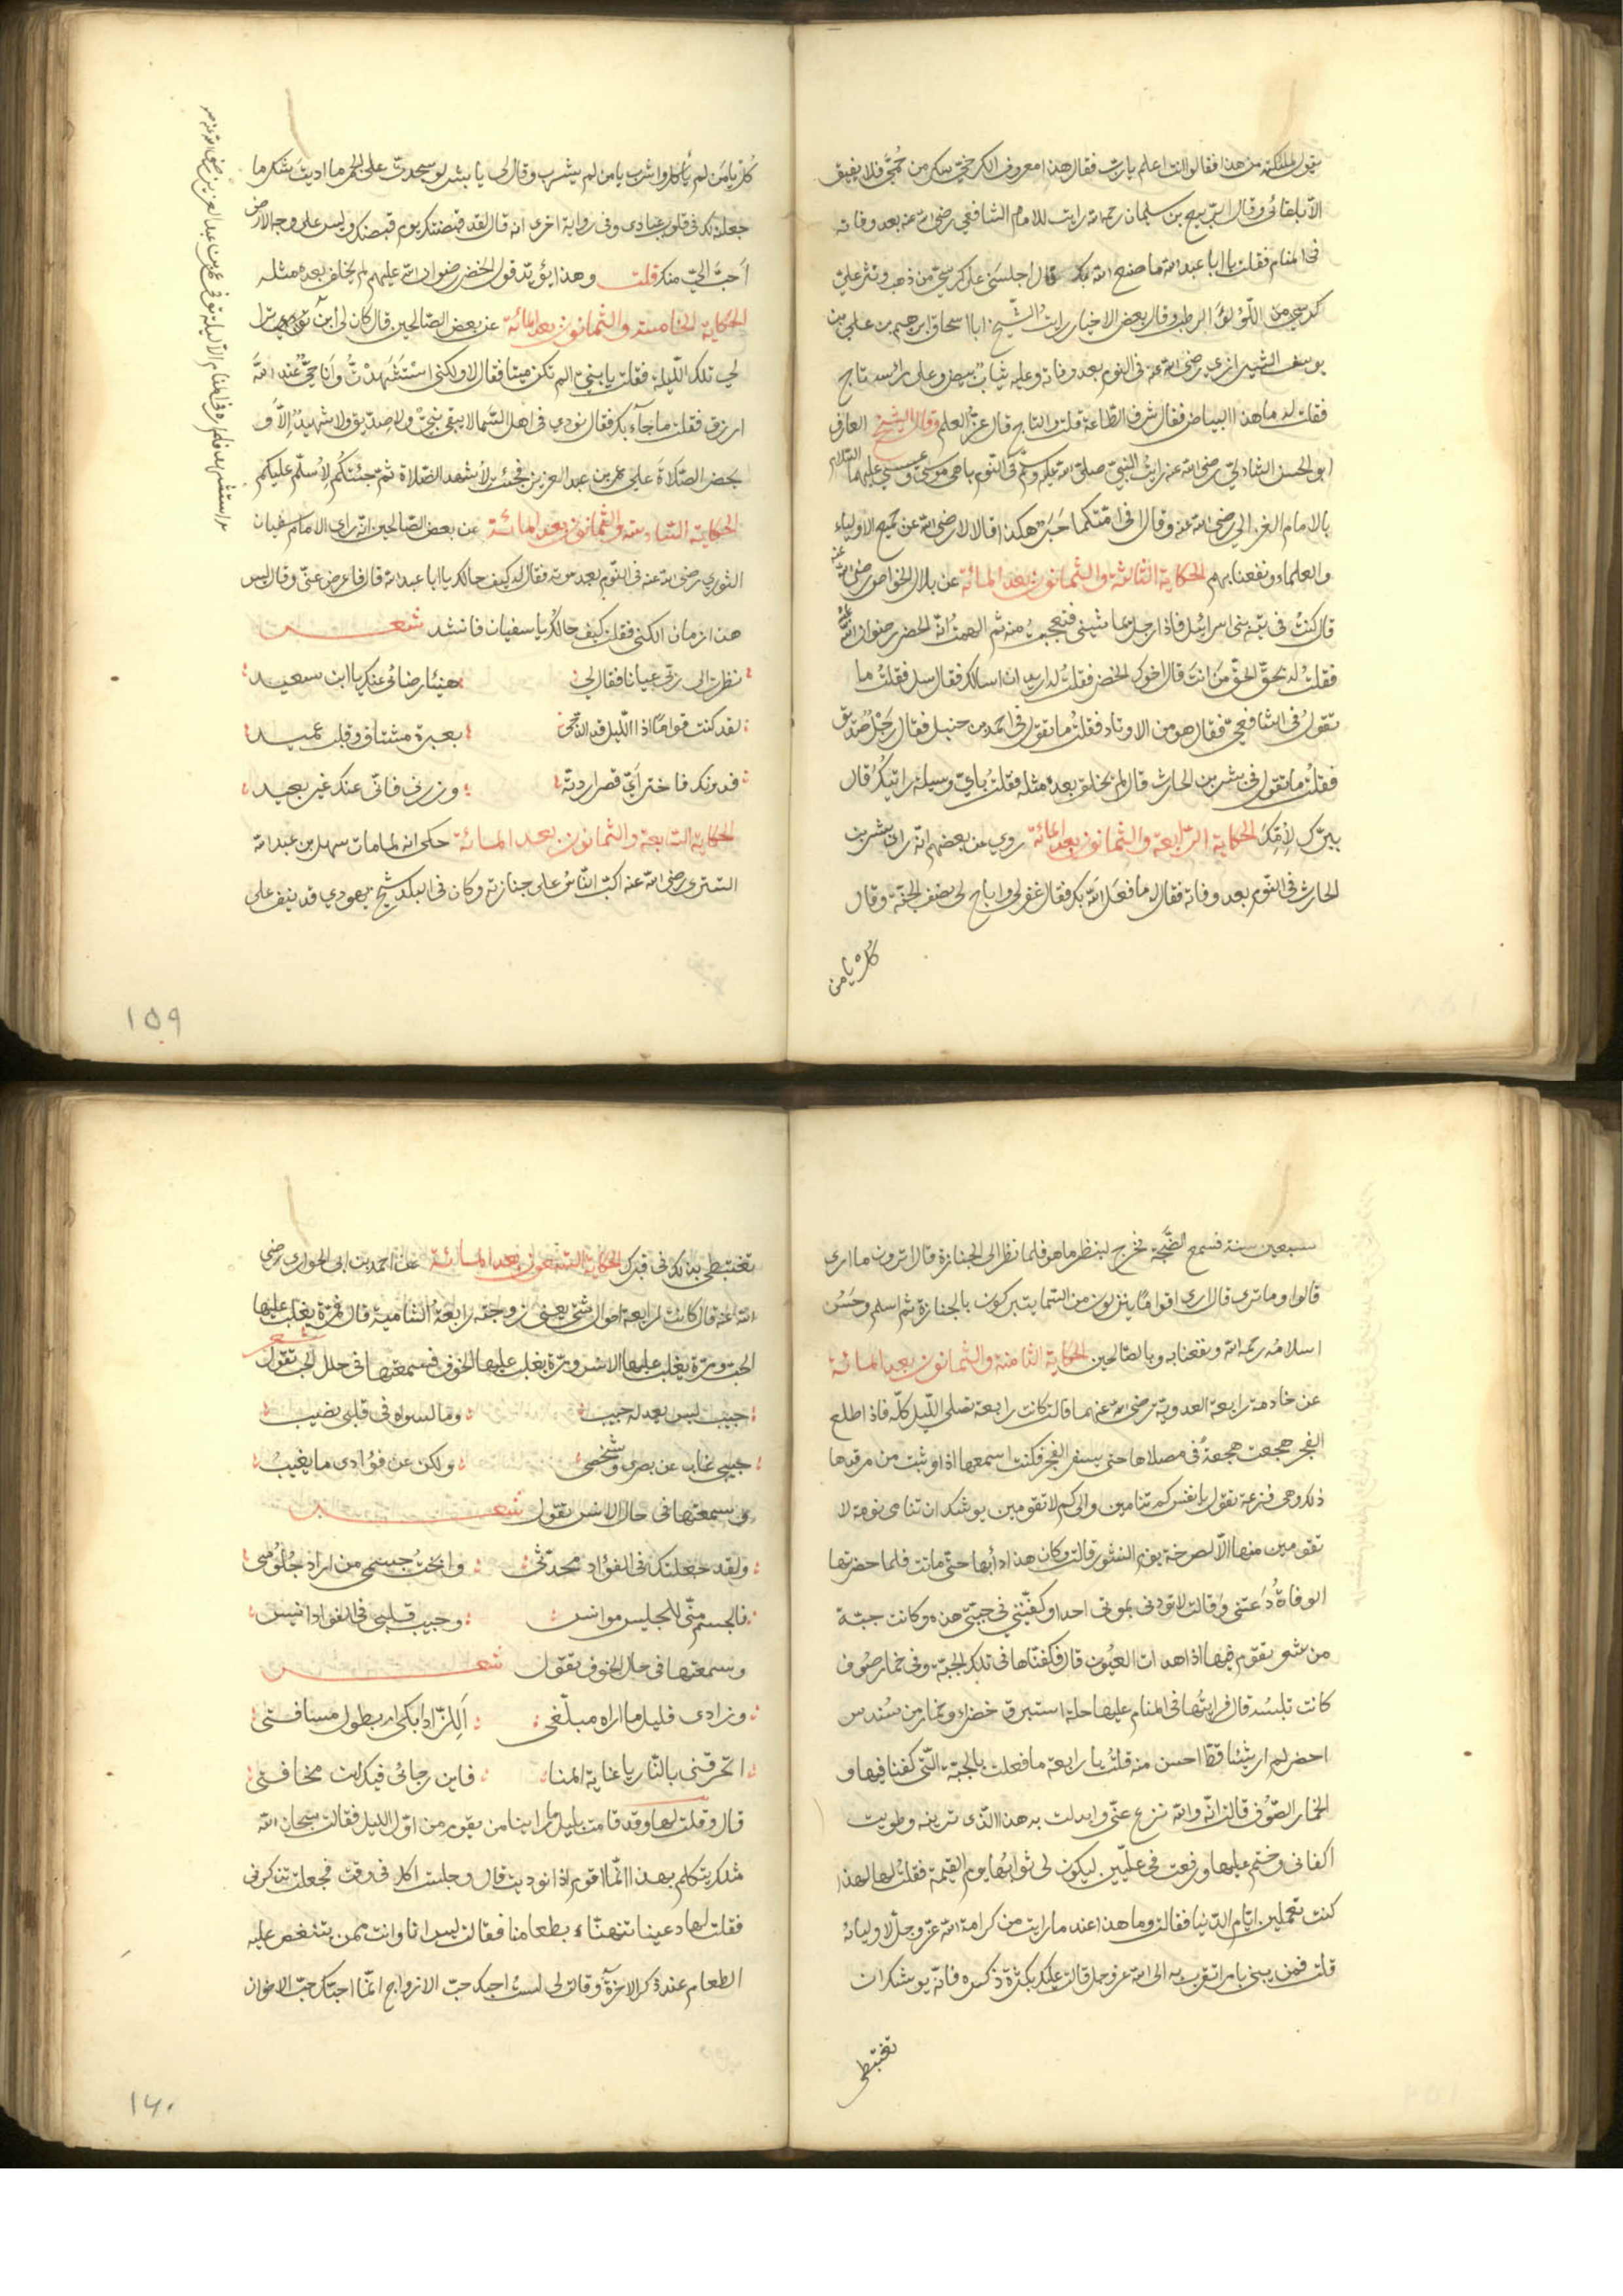 يقول للملئكة من هذا فقالوا انت اعلم يا رب فقال هذا معروف الكرخي سكر من حُبّي فلا يفيق
الّا بلقائى وقال الربيع بن سليمان رحمه الله رايت للامام الشافعي رضى الله عنه بعد وفاته
فى المنام فقلت يا ابا عبد الله ما صنع الله بك قال اجلسنى على كرسيّ من ذهب ونثر عليّ
اللّؤلؤ الرطب وقال بعض الاخيار رايت الشّيخ ابا اسحاق ابرهيم بن علي بن
يوسف الشيرازي رضى الله عنه فى النوم بعد وفاته وعليه ثياب بيض وعلى رأسه تاج
فقلت له ما هذا البياض فقال شرف الطّاعة قلت والتاج قال عزّ العلم وقال الشيخ العارف
ابو الحسن الشاذليّ رضى الله عنه رايت النبيّ صلى الله عليه وسلّم فى النّوم باهى موسى وعيسى عليهما السّلام
بالامام الغزالي رضى الله عنه وقال افى امّتكما حَبرٌ هكذا قالا لا رضى الله عن جميع الاولياء
والعلماء ونفعنا بهم الحكاية الثالثة والثمانون بعد المائة عن بلال الخواص رضى الله عنه
قال كنتُ فى تيه بنى اسرائيل فاذا رجل يماشينى فتعجبت منه ثم الهمتُ انّه الخضر رضوان الله عليه
فقلتُ له بحقّ الحقّ مَن انتَ قال اخوك الخضر فقلتُ له اريد ان اسالك فقال سل فقلتُ ما
تقولُ فى الشافعيّ فقال هو من الاوتاد فقلتُ ما تقول فى احمد بن حنبل فقال رَجُلٌ صدّيق
فقلتُ ما تقول فى بشر بن الحارث قال لم يخلق بعده مثله فقلتُ باىّ وسيلة رايتك قال
ببرّك لامّك الحكاية الرّابعة والثمانون بعد المائة روي عن بعضهم انّه راى بشر بن
الحارث فى النوم بعد وفاته فقال له ما فعَل الله بك فقال غفر لى واباح لى نصف الجنّة وقال
كُل يا من
كُل يا مَن لم يأكل واشرب يا من لم يشرب وقال لى يا بشر لو سجدتَ على الجمر ما اديتَ شكر ما
جعلت لك فى قلوب عبادى وفى رواية اخرى انه قال لقد قبضتك يوم قبضتك وليس على وجه الارض
احَبُّ اليّ منك قلت وهذا يؤيّد قول الخضر رضوان الله عليهم لم يخلف بعده مثله
الحكاية الخامسة والثمانون بعد المائة عن بعض الصّالحين قال كان لى ابن
لي تلك اللّيلة فقلت يا بنيّ الم تكن ميتا فقال لا ولكنى اسْتُشْهِدْتُ وَانا حيٌّ عند الله
ارزق فقلت ما جآء بك فقال نودي فى اهل السّما الا لا يبقى نبيّ ولا صدّيق ولا شهيدٌ الّا و
يحضر الصّلاة على عمر بن عبد العزيز فجئت لأشهد الصّلاة ثمّ جئتكُم لأسلّم عليكم
الحكاية السّادسة والثّمانون بعد المائة عن بعض الصّالحين انّه راى الامام سفيان
الثوري رضى الله عنه فى النوم بعد موته فقال له كيف حالك يا ابا عبد الله قال فاعرض عنّى وقال ليس
هذا زمان الكنى فقلت كيف حالك يا سفيان فانشد شعر
نظرت الى ربّى عيانا فقال لي هنيئا رضائى عنك يا ابن سعيد
لقد كنت قواما اذا اللّيل قد دجى بعبرة مشتاق وقلب عميد
فدونك فاختر اىّ قصر اردتّه وزرنى فانّى عنك غير بعيد
الحكاية السّابعة والثمانون بعد المائة حكى انه لما مات سهل بن عبد الله
التسترى رضى الله عنه اكبّ النّاس على جنازته وكان فى البلد شيخ يهودي قد نيف على
١٥٩
سبعين سنة فسمع الضّجة فخرج لينظر ما هو فلما نظر الى الجنازة قال اترون ما ارى
قالوا وما ترى قال ارى اقواما ينزلون من السّما يتبركون بالجنازة ثم اسلم وحَسُن
اسلامُه رحمه الله ونفعنا به وبالصّالحين الحكاية الثامنة والثمانون بعد المائة
عن خادمة رابعة العدوية رضى الله عنهما قالت كانت رابعة تصلى اللّيل كلّه فاذا طلع
الفجر هجعت هجعةً فى مصلاها حتى يسفر الفجر فكنت اسمعها اذا وثبت من مرقدها
ذلك وهى فزعة تقول يا نفس كم تنامين والى كم لا تقومين يوشك ان تنامى نومة لا
تقومين منها الّا لصرخة يوم النشور قالت وكان هذا دأبها حتّى ماتت فلما حضرتها
الوفاة دُعَتنى وقالت لا توذنى بموتى احدا وكفّنينى فى جبتى هذه وكانت جبّة
من شعر تقوم فيها اذا هدات العيُون قال فكفّنّاها فى تلك الجبّة وفى خمار صُوف
كانت تلبسُه قال فرايتُها فى المنام عليها حلة استبرق خضراء وخمار من سُندس
اخضر لم ار شيئا قطّ احسن منه قلتُ يا رابعة ما فعلت بالجبّة الّتى كفّنا فيها و
الخمار الصّوف قالت انّه والله نزع عنّى وابدلت به هذا الّذى ترينه وطويت
اكفانى وختم عليها ورفعت فى علّيين ليكون لى ثوابها يوم القيمة فقلتُ لها لهذا
كنت تعملين ايّام الدّنيا فقالت وما هذا عند ما رايت من كرامة الله عزّ وجلّ لاوليائه
قلت فمرينى بامر اتقرب به الى الله عز وجل قالت عليك بكثرة ذكره فانّه يوشك ان
تغتبطى
تغتبطى بذلك فى قبرك الحكاية التسعون بعد المائة عن احمد بن ابى الحوارى رضى
الله عنه قال كانت لرابعة احوال شتى يعنى زوجته رابعة الشامية قال فمرّة يغلب عليها
الحبّ ومرّة يغلب عليها الانس ومرّة يغلب عليها الخوف فسمعتها فى حال الحب تقول شعر
حبيب ليس يعدله حبيب وما لسواه فى قلبى نصيب
حبيبى غاب عن بصرى وشخصى ولكن عن فؤادى ما يغيبُ
وسمعتها فى حال الانس تقول شعر
ولقد جعلتك فى الفؤاد محدّثى وابحتُ جسمى من اراد جُلُوسى
فالجسم منّى للجليس موانس وحبيب قلبى فى الفؤاد انيس
وسمعتها فى حال الخوف تقول شعر
وزادى قليل ما اراه مبلّغى أللزّاد ابكى ام بطول مسافتى
اتحرقنى بالنّار يا غاية المنا فاين رجائى فيك اين مخافتى
قال وقلت لها وقد قامت بليل ما راينا من يقوم من اوّل الليل فقالت سبحان الله
مثلك يتكلم بهذا انّما اقوم اذا نوديت قال وجلست اكل فى وقت فجعلت تذكرنى
فقلت لها دعينا نتهنّاء بطعامنا فقالت ليس انا وانت ممن يتنغص عليه
الطعام عند ذكر الاخرة وقالت لى لستُ احبك حبّ الازواج انّما احبّك حبّ الاخوان
١٦٠